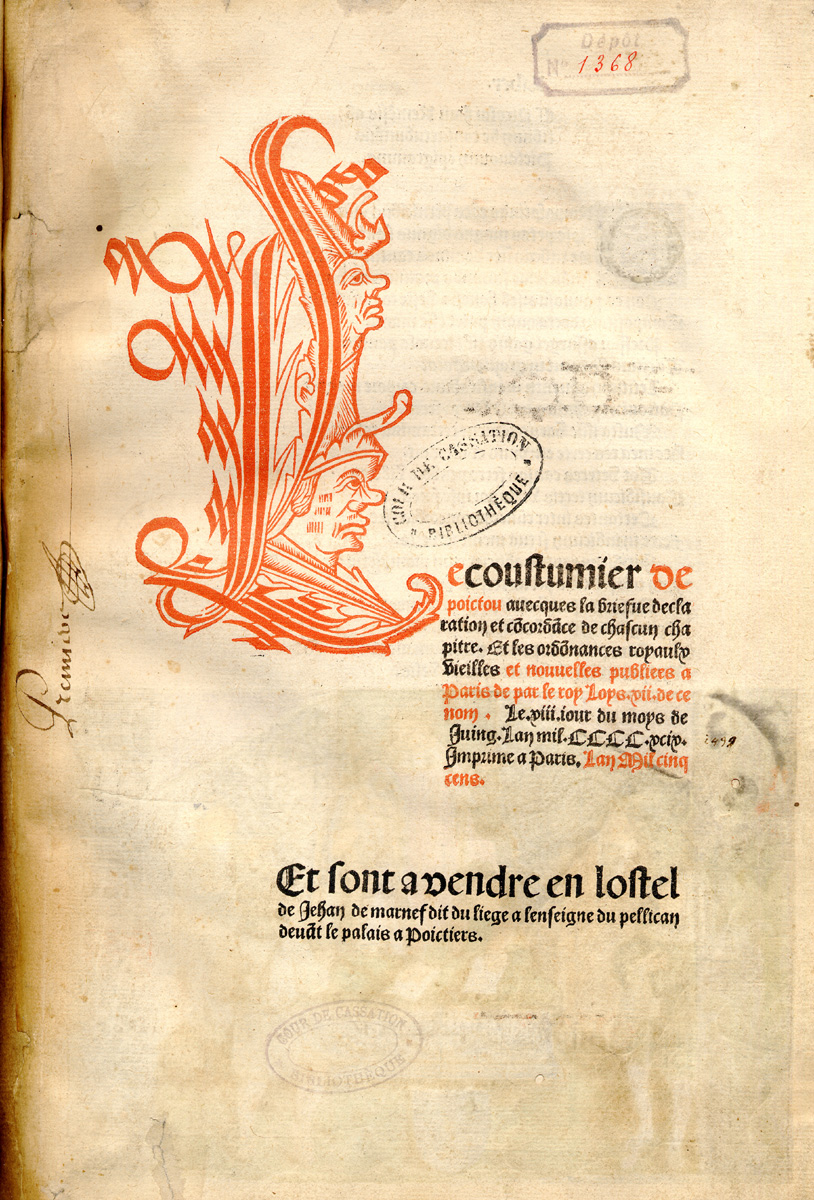 Dépôt
N° 1368
COUR DE CASSATION
BIBLIOTHÈQUE
Lecoustumier de
poictou auecques la briefue decla
ration et cõcordãce de chascun cha
pitre. Et les ordõnances royaulx
vieilles et nouuelles publiers a
Paris de par le roy Loys.xii.de ce
nom. Le.xiii.iour du moys de
Juing. Lan mil.CCCC.xcix.
1499
Imprime a Paris. Lan Mil cinq
cens.
Et sont a vendre en lostel
de Jehan de marnef dit du liege a lenseigne du pellican
deuãt le palais a Poictiers.
COUR DE CASSATION
BIBLIOTHÈQUE